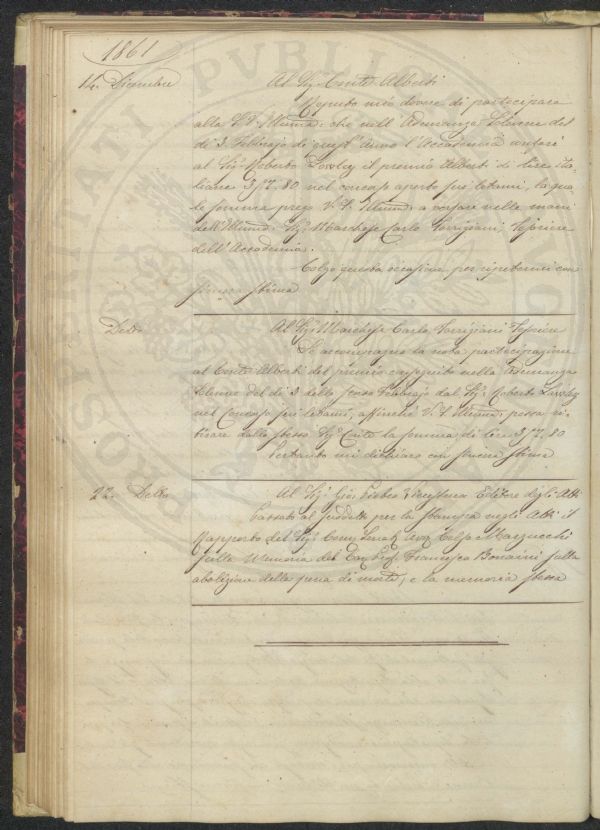 1861
14. Dicembre Al Sig. Conte Alberti
Reputo mio dovere di partecipare
alla V. S. Illma. che nell' Adunanza Solenne del
dì 3. Febbrajo di quest' Anno l'Accademia conferì
al Sig. Roberto Lawley il premio Alberti di lire Ita-
liane 317. 80 nel concorso aperto sui letami, la qua-
le somma prego V. S. Illma. a versare nelle mani
dell' Illmo. Sig. Marchese Carlo Torrigiani, Tesoriere
dell' Accademia.
Colgo questa occasione per ripetermi con
sincera stima
Detto Al Sig. Marchese Carlo Torrigiani Tesoriere
Le accompagno la nota partecipazione
al Conte Alberti del premio conseguito nella Adunanza
Solenne del dì 3 dello scorso Febbrajo dal Sig. Roberto Lawley
nel Concorso sui letami, affinchè V. S. Illma. possa ri-
tirare dallo stesso Sig. Conte la somma di lire 317. 80
e mi dichiaro con sincera stima
22. Detto Al Sig. Gio. Pietro Vieusseux Editore degli Atti
Passato al suddetto per la stampa negli Atti il
Rapporto del Sig. Comm. Senat. Avv. Celso Marzucchi
sulla Memoria del Cav. Prof. Francesco Bonaini sulla
abolizione della pena di morte, e la memoria stessa
PROSPERITATI PVBLICAE